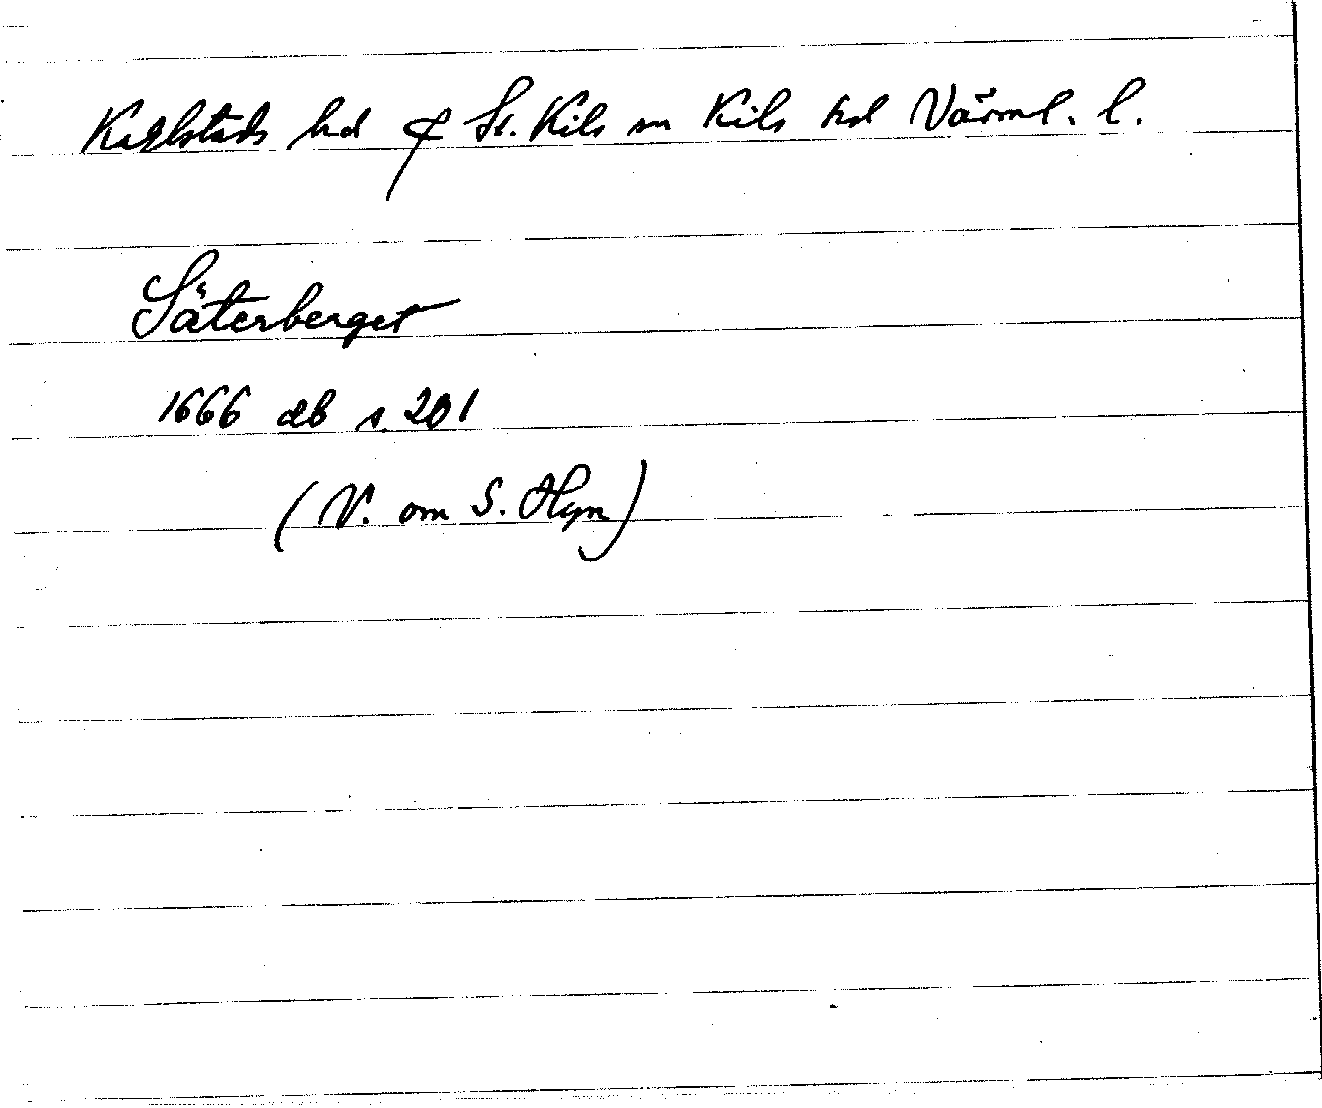 Karlstads hd & St. Kils sn Kils hd Värml. l.
Säterberget
1666 db s. 201
(V. om S. Hyn)